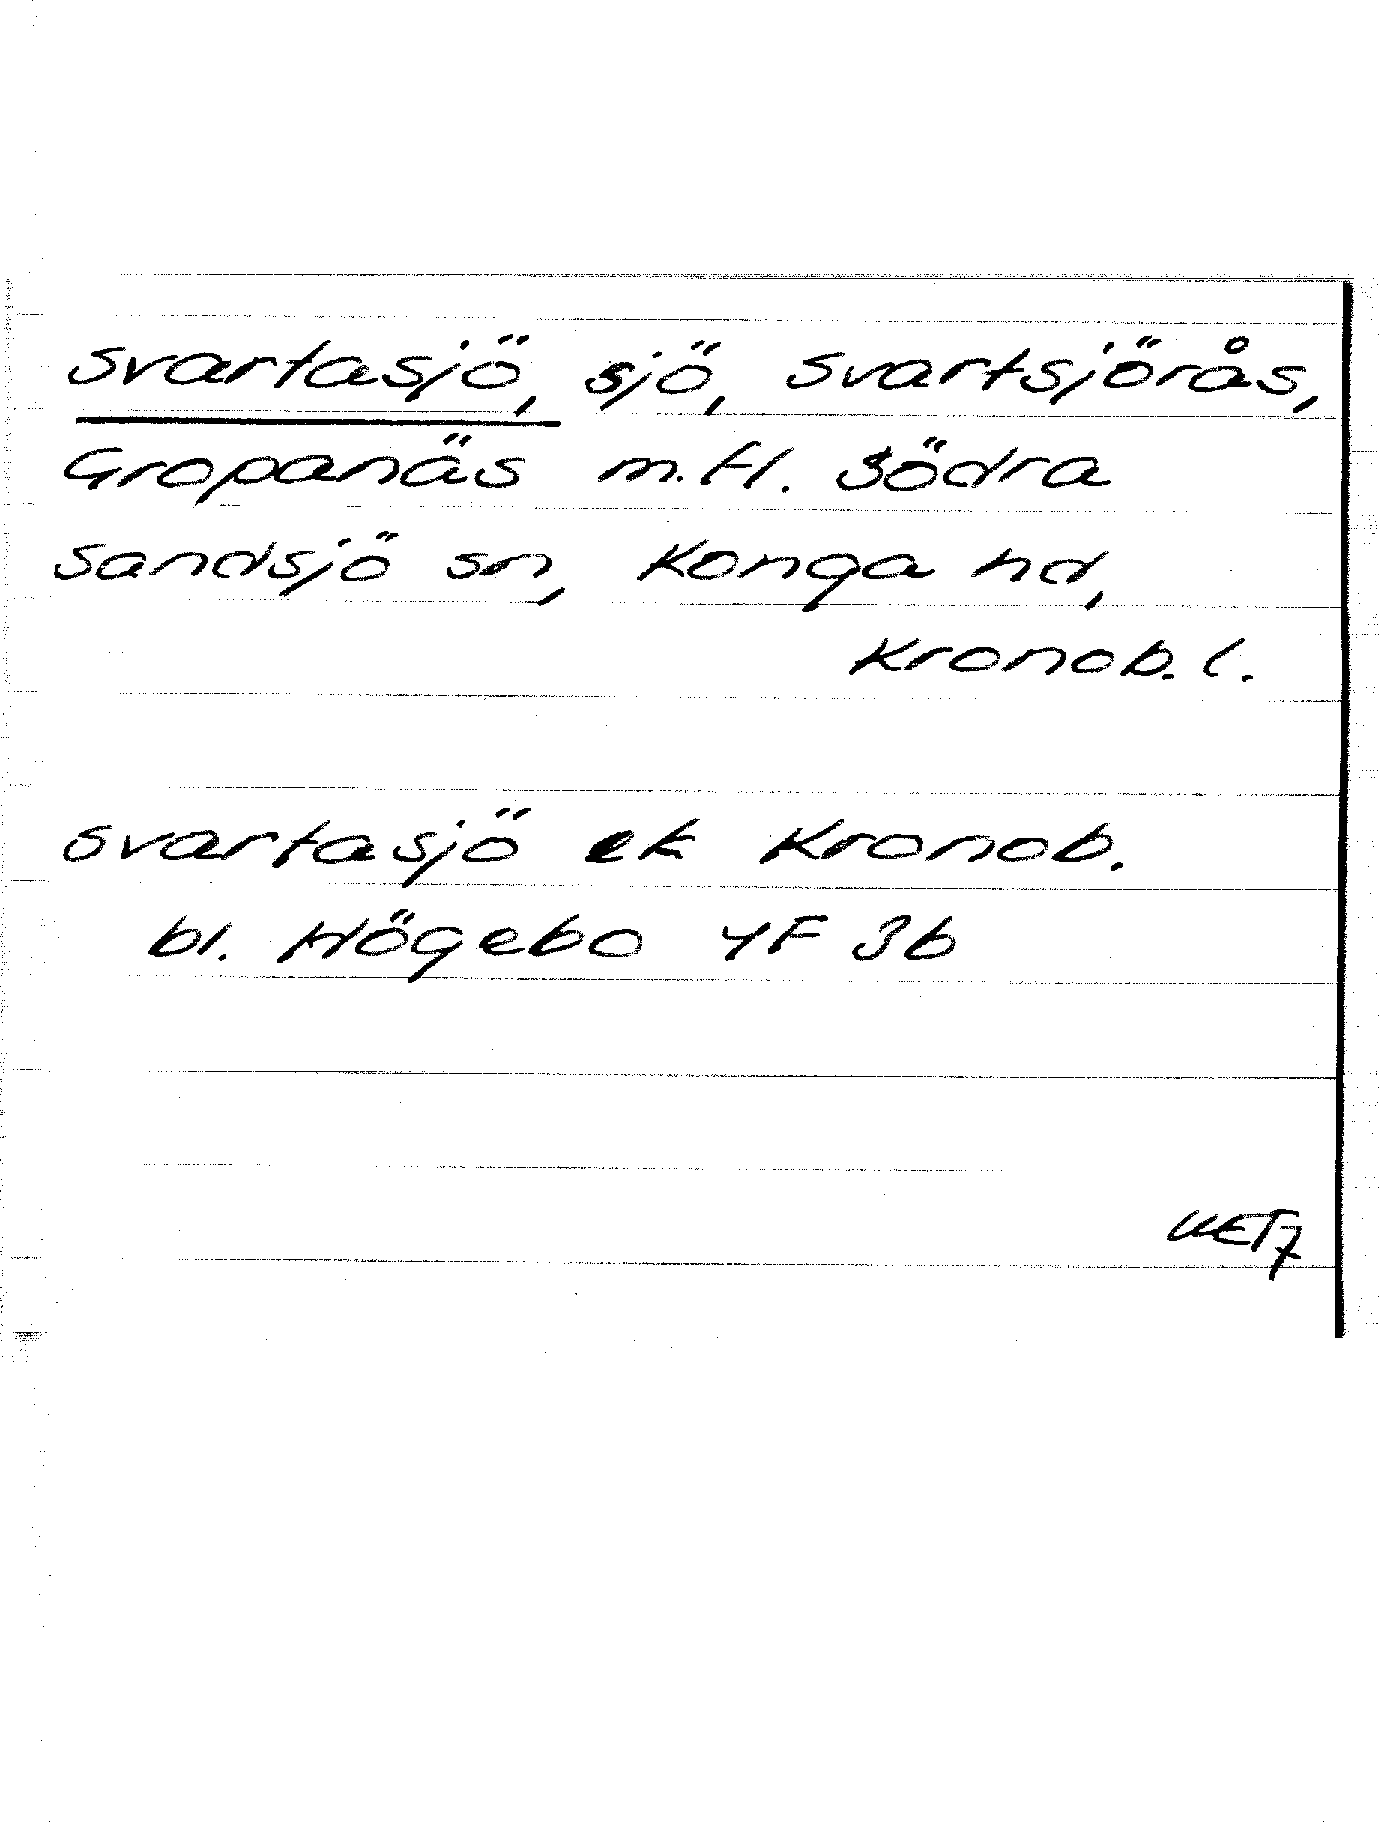 Svartasjö, sjö, Svartsjörås,
Gropanäs m.fl. Södra
Sandsjö sn, Konga hd,
Kronob. l.
Svartasjö ek Kronob.
bl. Högebo 4F 3b